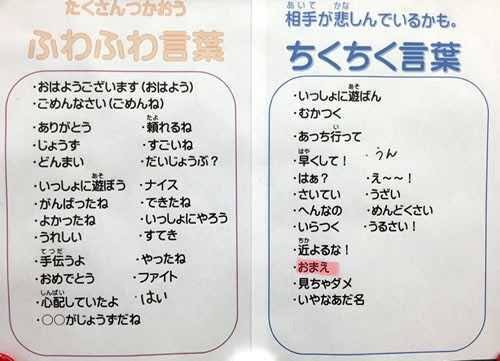 たくさんつかおう
ふわふわ言葉
・おはようございます(おはよう)
・ごめんなさい(ごめんね)
・ありがとう ・頼れるね
・じょうず ・すごいね
・どんまい ・だいじょうぶ?
・いっしょに遊ぼう ・ナイス
・がんばったね ・できたね
・よかったね ・いっしょにやろう
・うれしい ・すてき
・手伝うよ ・やったね
・おめでとう ・ファイト
・心配していたよ ・はい
・○○がじょうずだね
相手が悲しんでいるかも。
ちくちく言葉
・いっしょに遊ばん
・むかつく
・あっち行って
・早くして! ・うん
・はぁ? ・え〜〜!
・さいてい ・うざい
・へんなの ・めんどくさい
・いらつく ・うるさい!
・近よるな!
・おまえ
・見ちゃダメ
・いやなあだ名